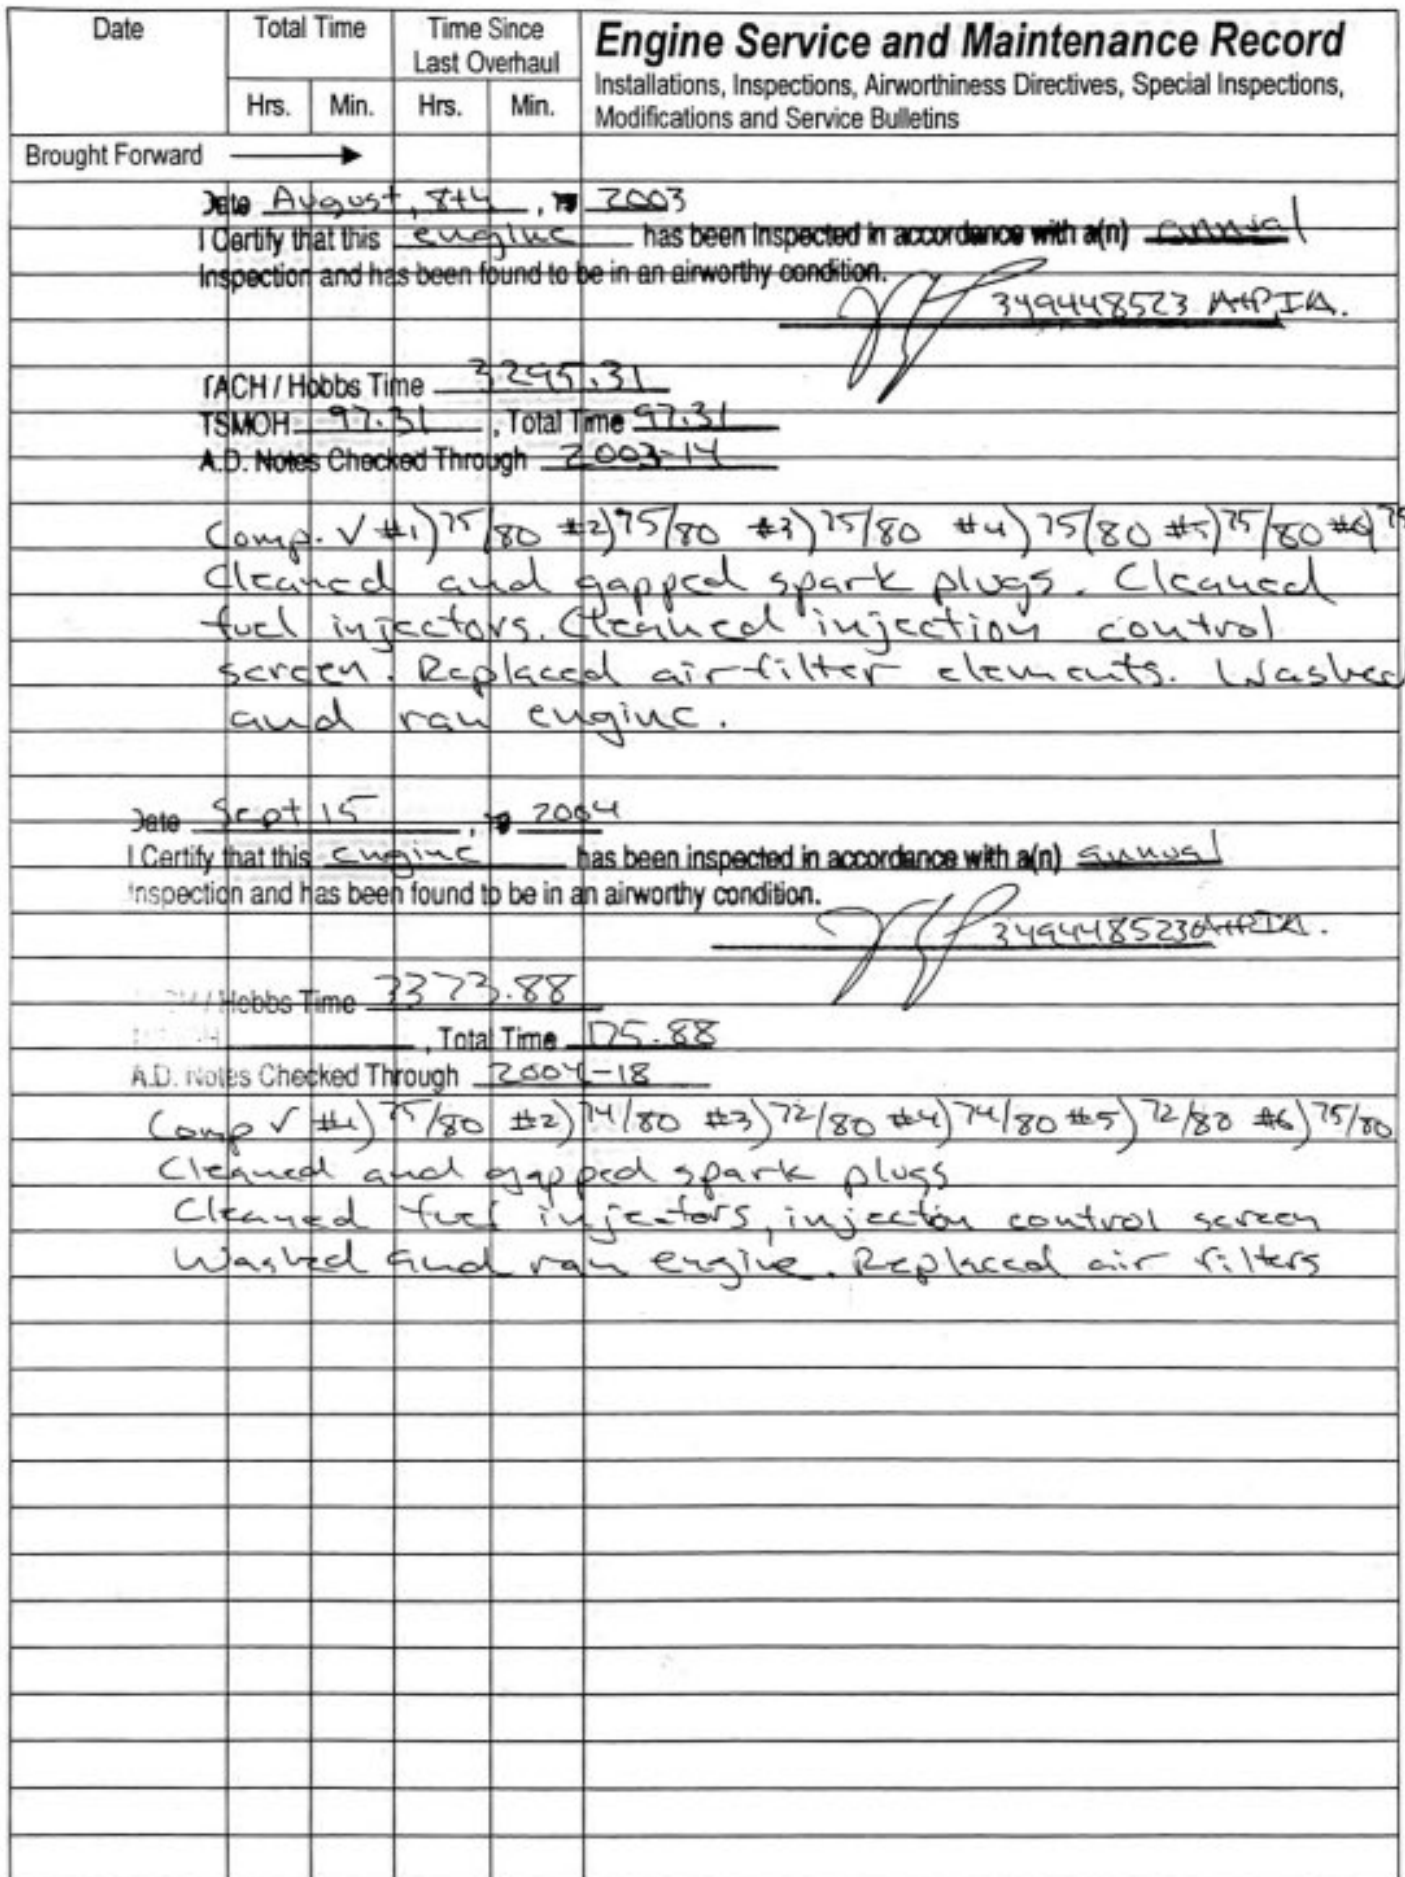 Date
Total Time
Time Since
Last Overhaul
Hrs. Min. Hrs. Min.
Engine Service and Maintenance Record
Installations, Inspections, Airworthiness Directives, Special Inspections,
Modifications and Service Bulletins
Brought Forward
Date August, 8th, 19 2003
I Certify that this engine has been Inspected in accordance with a(n) annual
Inspection and has been found to be in an airworthy condition.
349448523 A+P IA.
TACH / Hobbs Time 3295.31
TSMOH 97.31, Total Time 97.31
A.D. Notes Checked Through 2003-14
Comp. √ #1) 75/80 #2) 75/80 #3) 75/80 #4) 75/80 #5) 75/80 #6) 75
Cleaned and gapped spark plugs. Cleaned
fuel injectors. Cleaned injection control
screen. Replaced air filter elements. Washed
and ran engine.
Date Sept 15, 19 2004
I Certify that this engine has been inspected in accordance with a(n) annual
Inspection and has been found to be in an airworthy condition.
349448523 A+P IA.
/ Hobbs Time 3373.88
, Total Time 175.88
A.D. Notes Checked Through 2004-18
Comp √ #1) 75/80 #2) 74/80 #3) 72/80 #4) 74/80 #5) 72/80 #6) 75/80
Cleaned and gapped spark plugs
Cleaned fuel injectors, injection control screen
Washed and ran engine. Replaced air filters